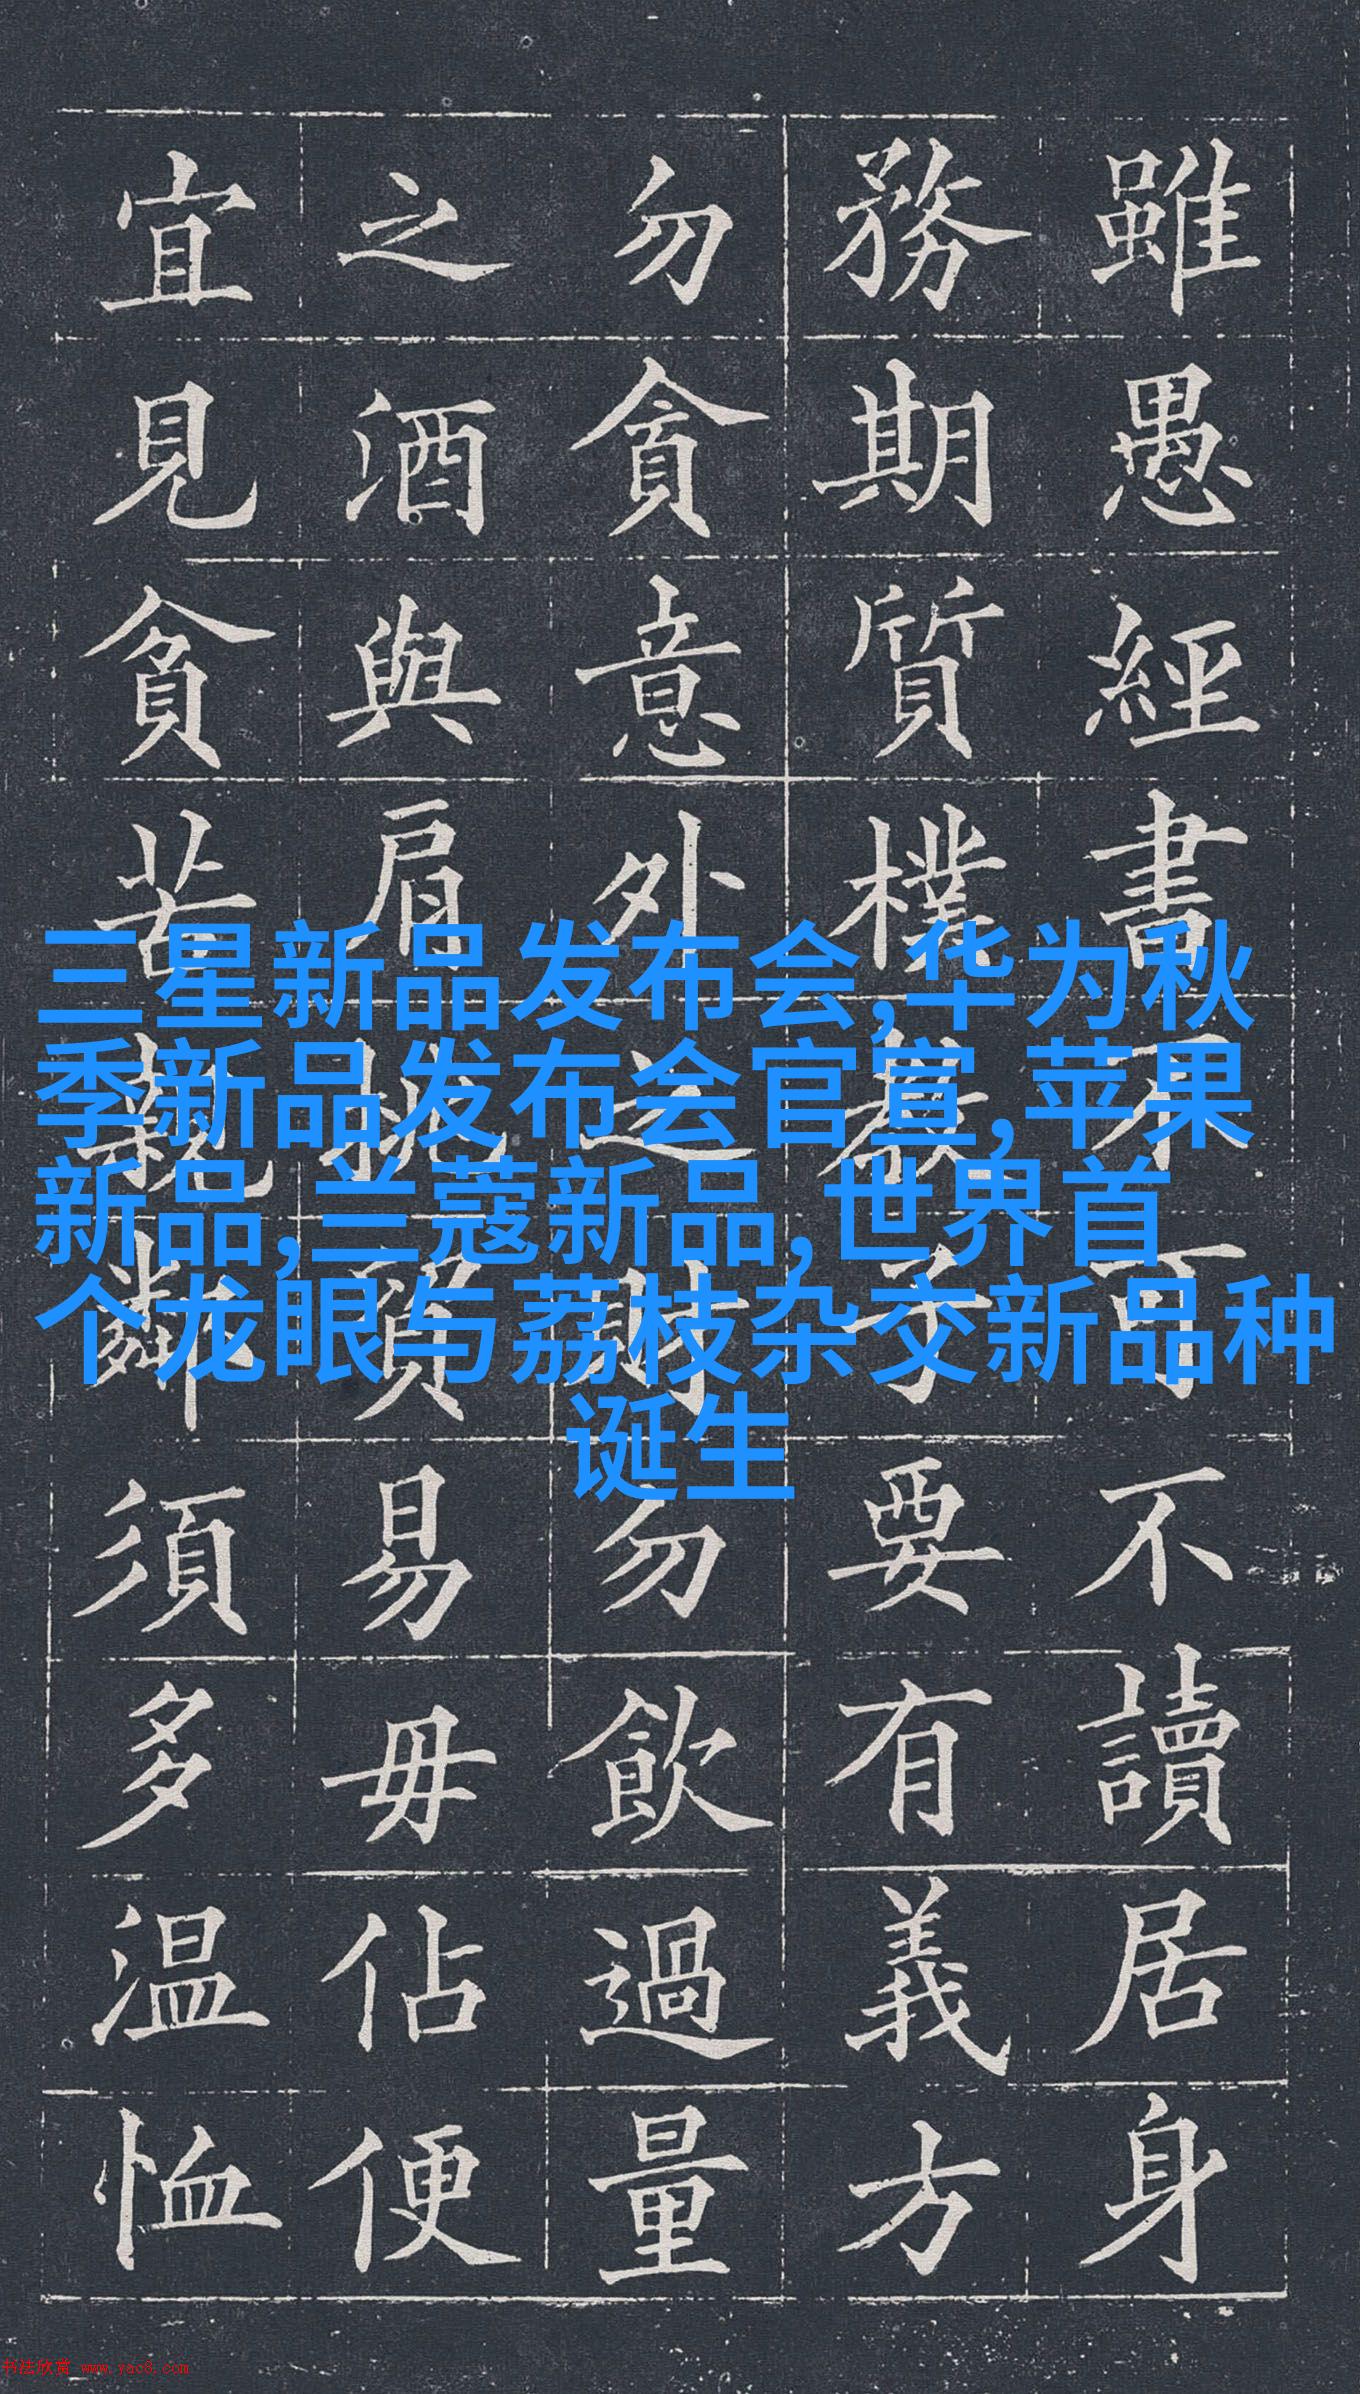 雖愚經書不可不讀居身
務期質樸教子要有義方
勿貪意外之財勿飲過量
之酒與肩挑貿易毋佔便
宜見貧苦親鄰須多温恤
三星新品发布会,华为秋
季新品发布会官宣,苹果
新品,兰蔻新品,世界首
个龙眼与荔枝杂交新品种
诞生
书法欣赏 www.yac8.com